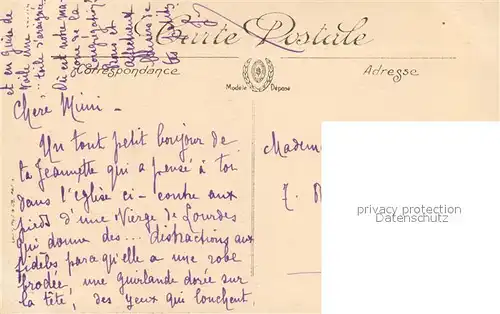 Carte Postale
Correspondance
Adresse
Modèle Déposé
Chère Mimi -
Un tout petit bonjour de
ta Jeannette qui a pensé à toi
dans l'Eglise ci-contre aux
pieds d'une Vierge de Lourdes
qui donne des... distractions aux
fidèles parcqu'elle a une robe
brodée, une guirlande dorée sur
la tête, des yeux qui louchent,
et en guise de
voile une
toile d'araignée
Où est notre
de la
et
Mademo
privacy protection
Datenschutz